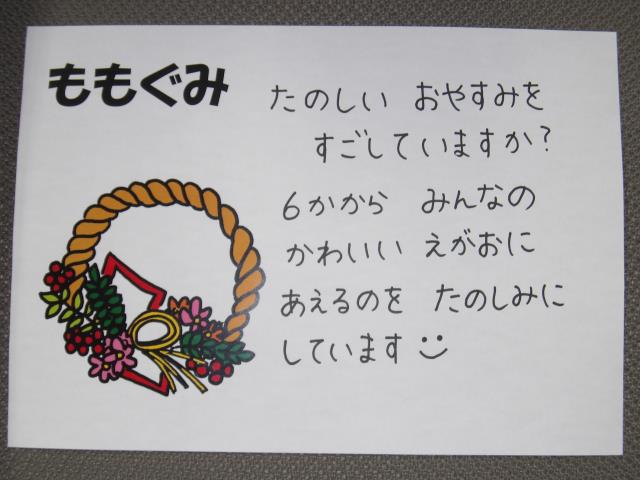 ももぐみ
たのしい おやすみを
すごしていますか?
6かから みんなの
かわいい えがおに
あえるのを たのしみに
しています